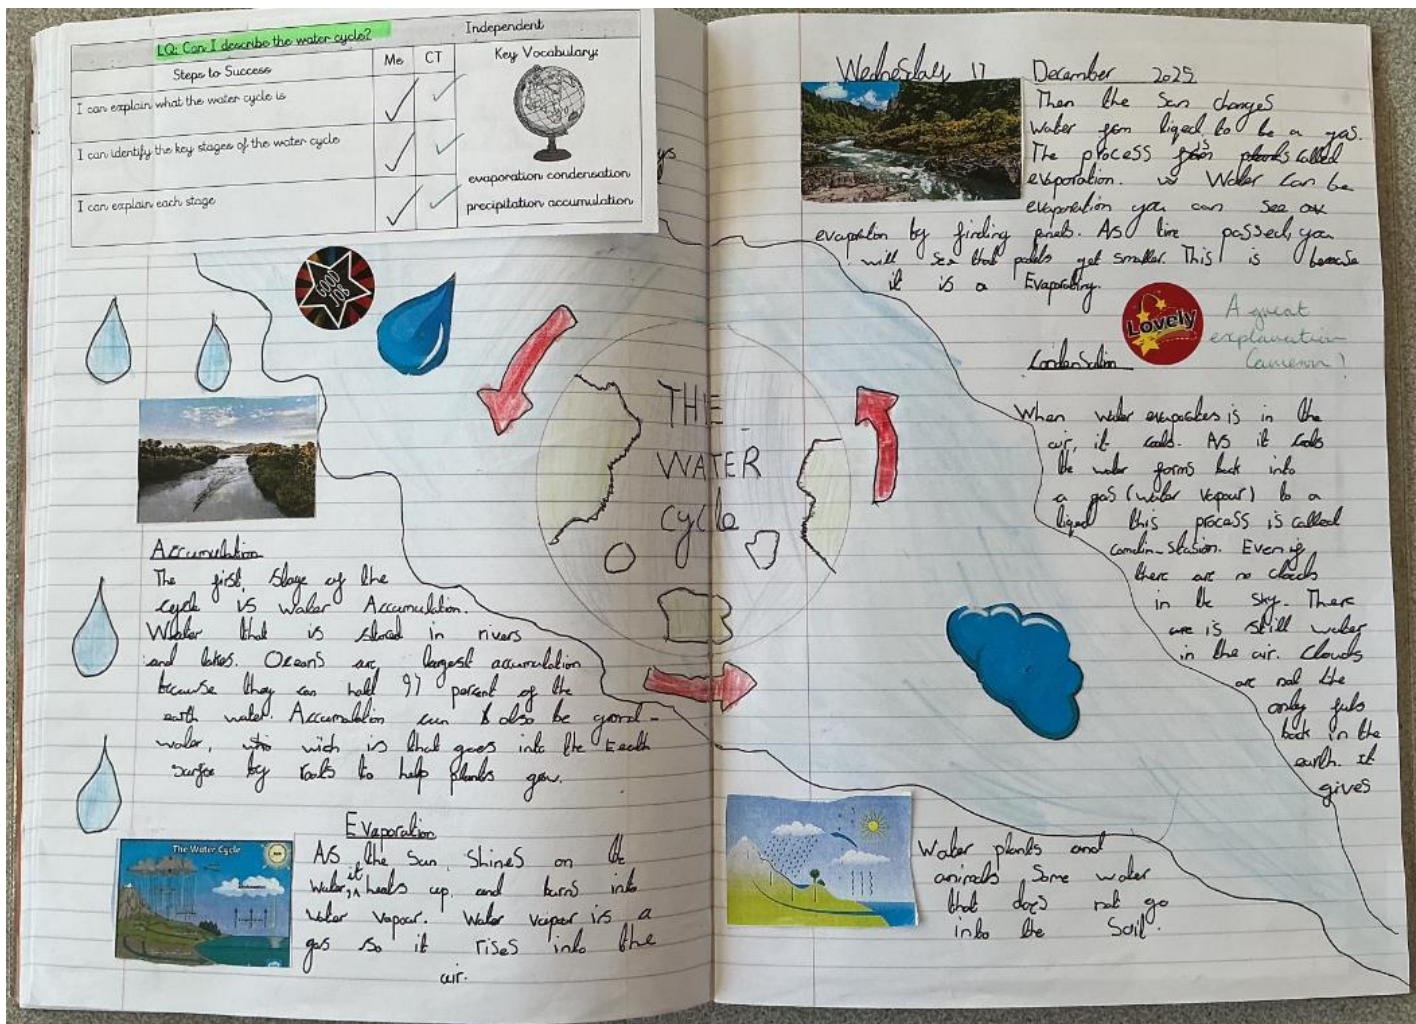 LQ: Can I describe the water cycle?
Independent
Steps to Success
Me
CT
Key Vocabulary:
I can explain what the water cycle is
I can identify the key stages of the water cycle
I can explain each stage
evaporation condensation
precipitation accumulation
GOOD JOB
THE
WATER
cycle
Accumulation
The first stage of the
cycle is Water Accumulation.
Water that is stored in rivers
and lakes. Oceans are largest accumulation
because they can hold 97 percent of the
earth water. Accumulation can also be
water, wich is that goes into the Earth
by roots to help plants grow.
Evaporation
As the Sun Shines on the
Water, it heats up, and turns into
water vapour. Water vapour is a
gas so it rises into the
air.
The Water Cycle
Wednesday 17 December 2025
Then the Sun changes
Water from liqed to be a gas.
The process is called
evaporation. Water can be
evaporation you can see
by finding. As time passed, you
will see that get smaller. This is because
it is a Evaporating.
Lovely
A great
explanation
Cameron!
When water evaporates is in the
air, it cools. As it cools
the water forms back into
a gas (water vapour) to a
liqed this process is called
Even if
there are no clouds
in the sky. There
is still water
in the air. Clouds
are not the
only
back in the
earth. It
gives
Water plants and
animals Some water
that does not go
into the Soil.